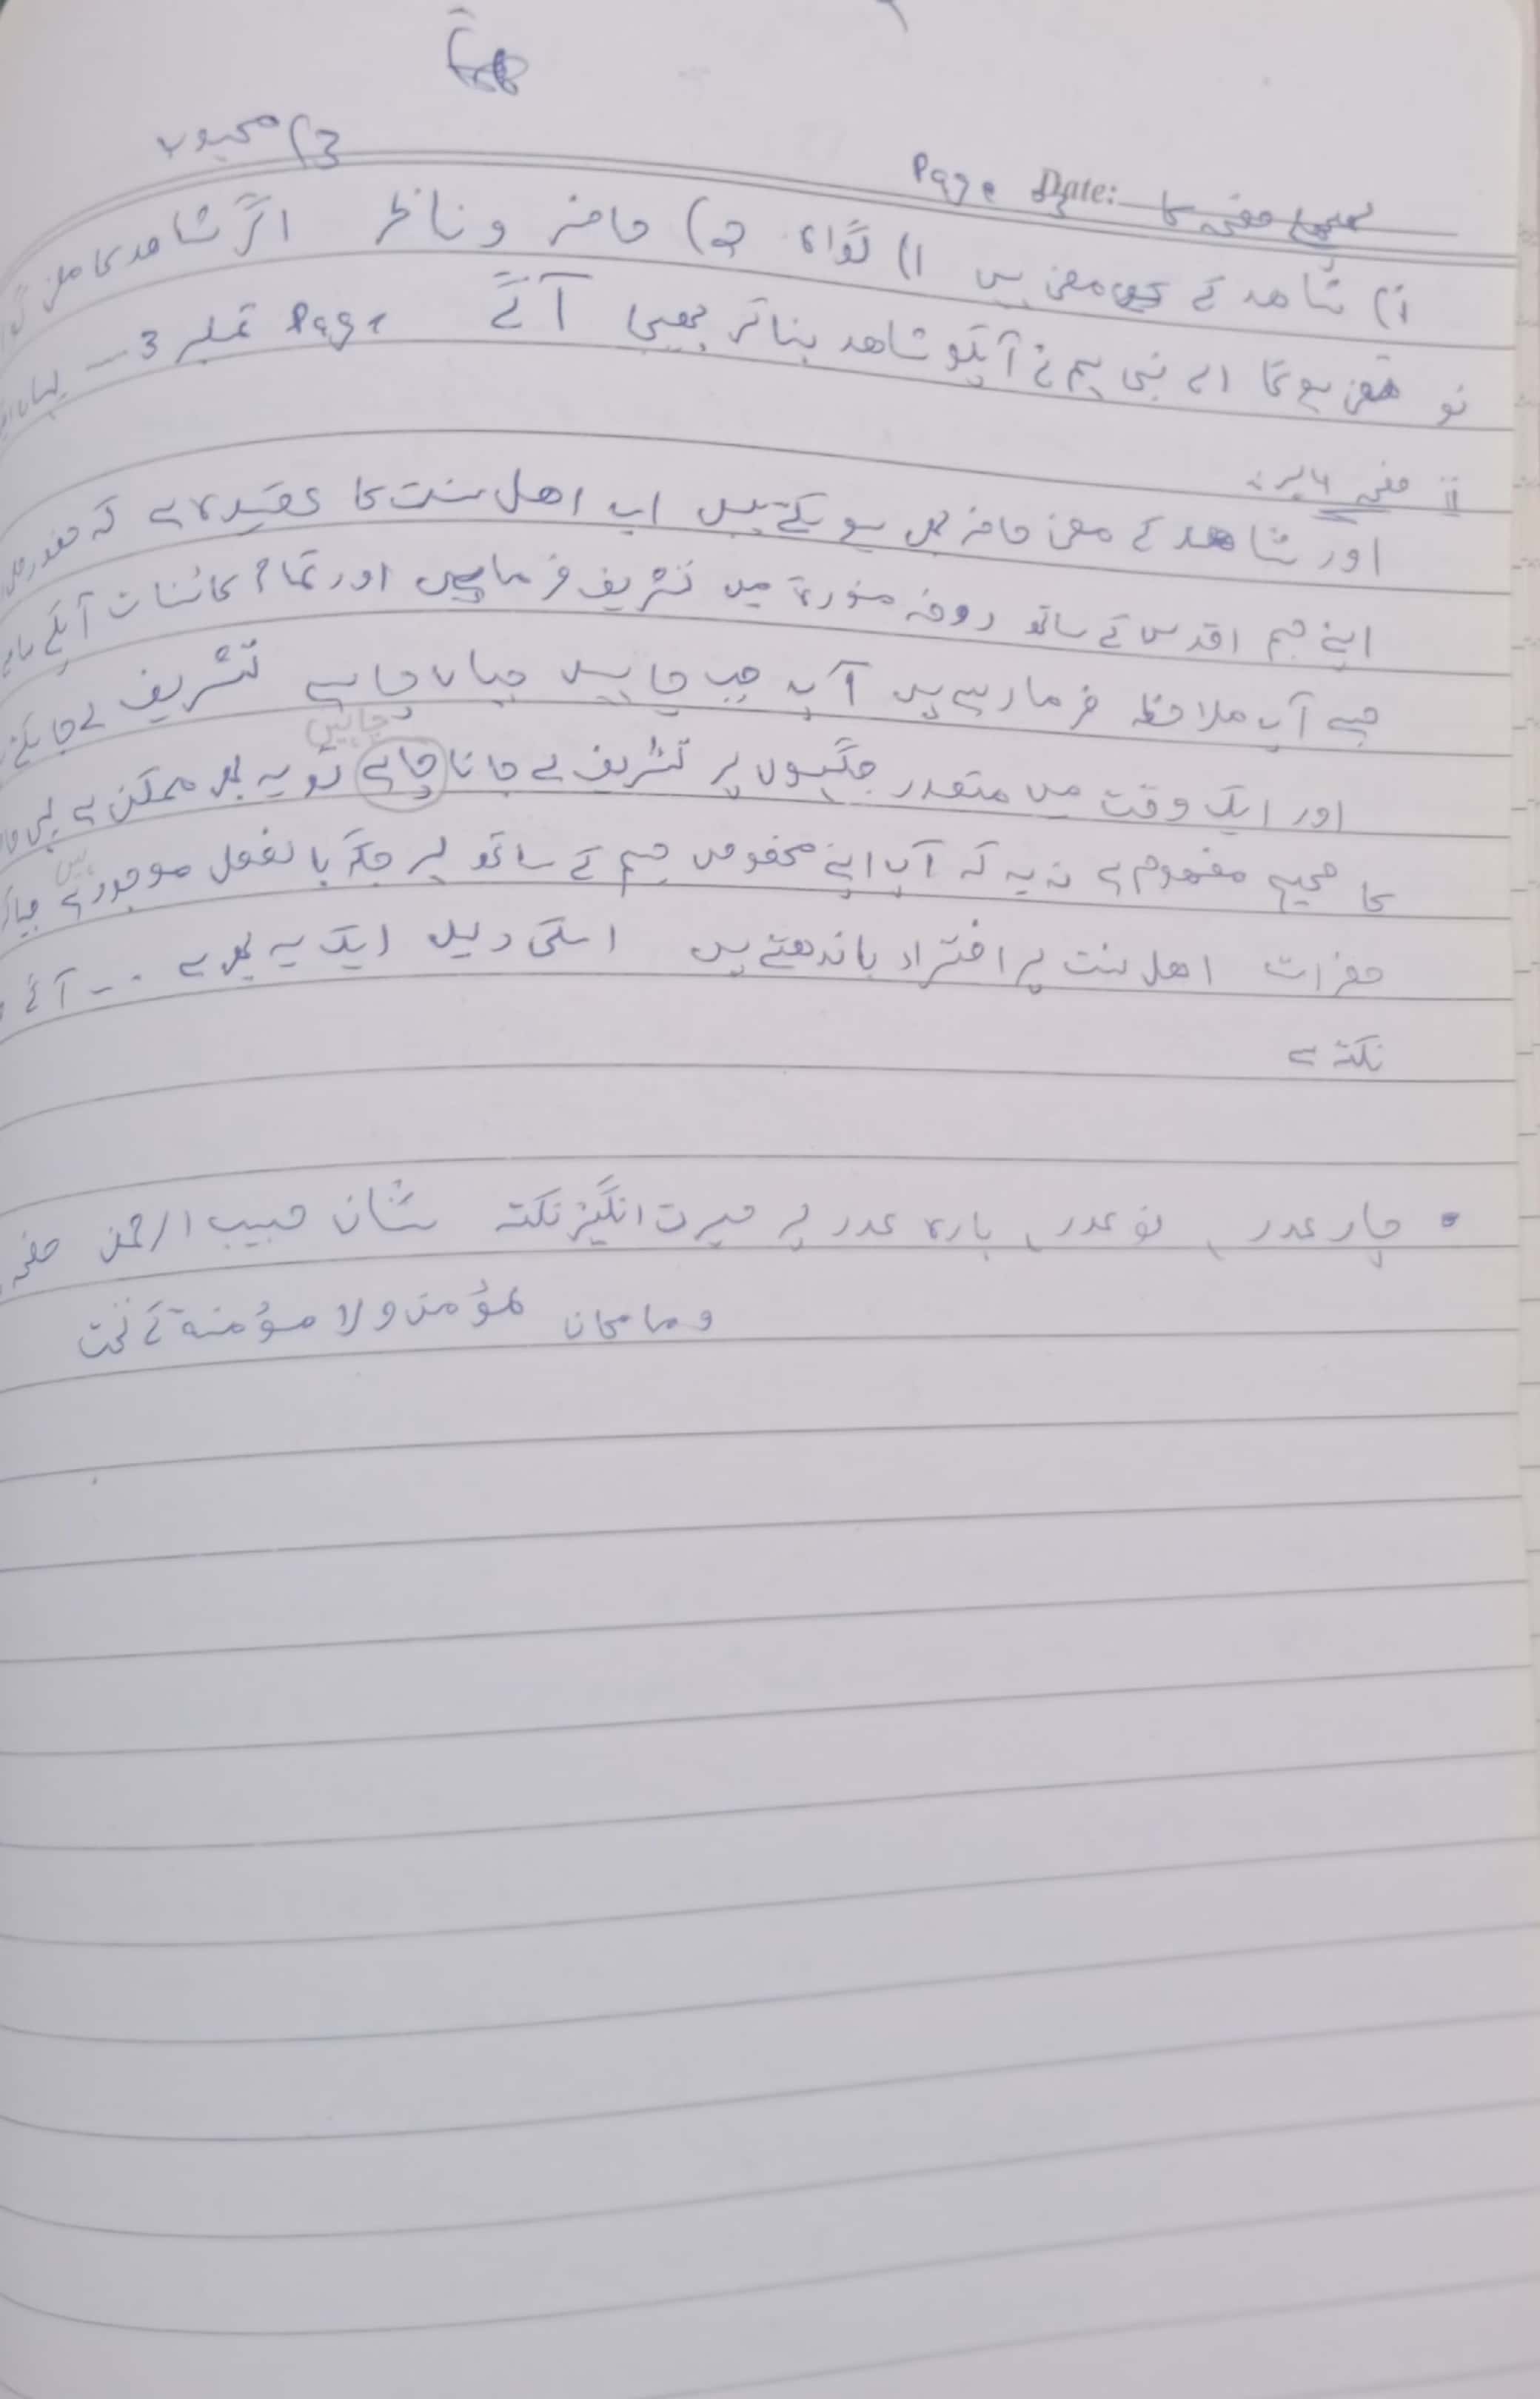 3) محبوب
Page Date: صفحہ کا
i) شاھد کے معنی ہیں 1) گواہ 2) حاضر و ناظر اگر شاھد کا معنی
تو معنی ہوگا اے نبی ہم نے آپکو شاھد بنا کر بھیجا آگے Page نمبر 3 --- یہاں
ii صفحہ 4 پر:
اور شاھد کے معنی حاضر بھی ہو سکتے ہیں اب اھل سنت کا عقیدہ ہے کہ
اپنے جسم اقدس کے ساتھ روضہ منورۃ میں تشریف فرما ہیں اور تمام کائنات آپکے
جسے آپ ملاحظہ فرما رہے ہیں آپ جب چاہیں جہاں چاہے تشریف لے جا سکتے
چاہیں
اور ایک وقت میں متعدد جگہوں پر تشریف لے جانا چاہے تو یہ بھی ممکن ہے یہی
کا صحیح مفہوم ہے نہ یہ کہ آپ اپنے مخصوص جسم کے ساتھ ہر جگہ بالفعل موجود ہے
ہیں
حضرات اھل سنت پر افتراء باندھتے ہیں اسکی دلیل ایک یہ بھی ہے --- آگے
نکتہ ہے
• چار عدد، نو عدد، بارہ عدد پر حیرت انگیز نکتہ شان حبیب الرحمٰن صفحہ
وما کان لمؤمن ولا مؤمنۃ کے تحت